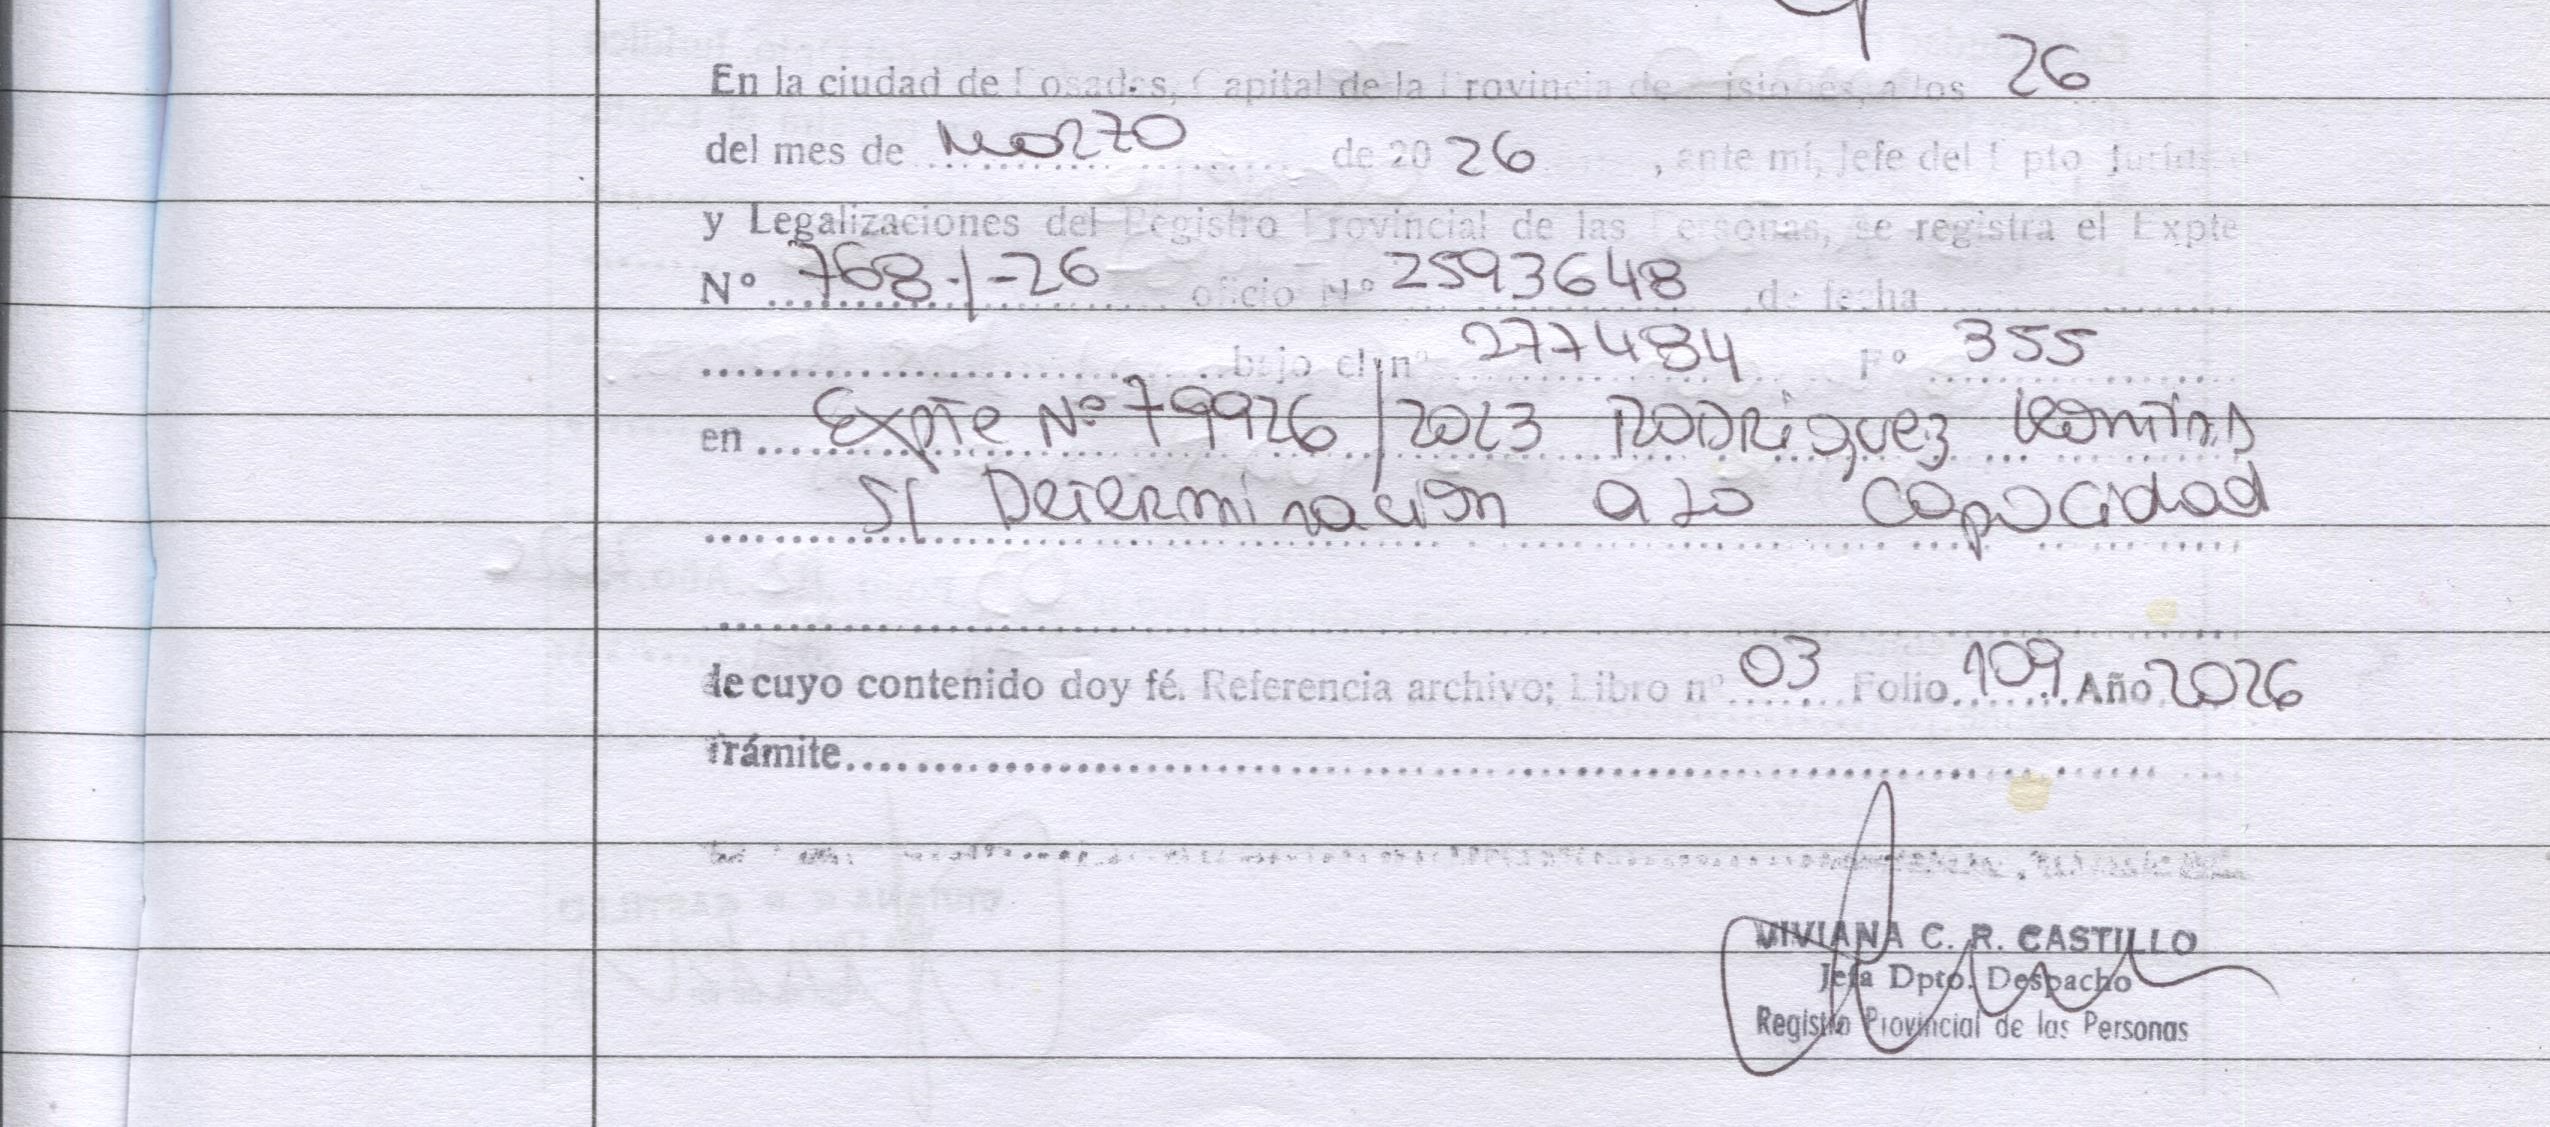 En la ciudad de Posadas, Capital de la Provincia de Misiones, a los 26
del mes de Marzo de 20 26 , ante mí, Jefe del Dpto Jurídico
y Legalizaciones del Registro Provincial de las Personas, se registra el Expte
Nº 768-/-26 oficio Nº 2593648 de fecha
bajo el nº 277484 Fº 355
en Expte Nº 79926/2023 RODRiguez
S/ Determinación a la capacidad
de cuyo contenido doy fé. Referencia archivo; Libro nº 03 Folio 109 Año 2026
Trámite
VIVIANA C. R. CASTILLO
Jefa Dpto. Despacho
Registro Provincial de las Personas